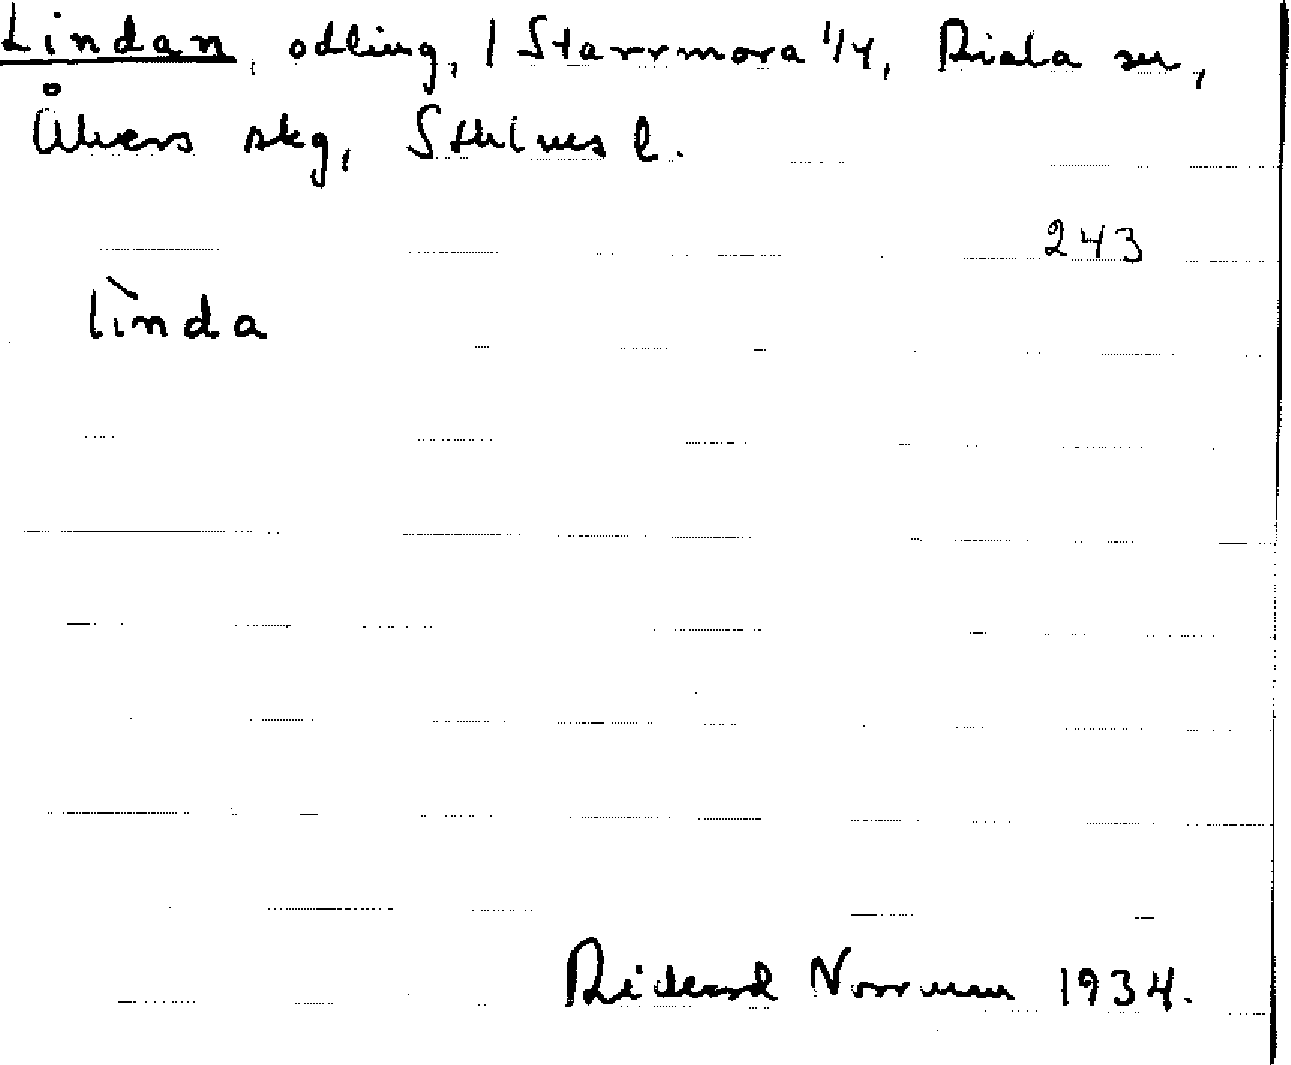 Lindan, odling, 1 Starrmora 1/4, Riala sn,
Åkers skg, Sthlms l.
243
lìnda
Rickard Norrman 1934.